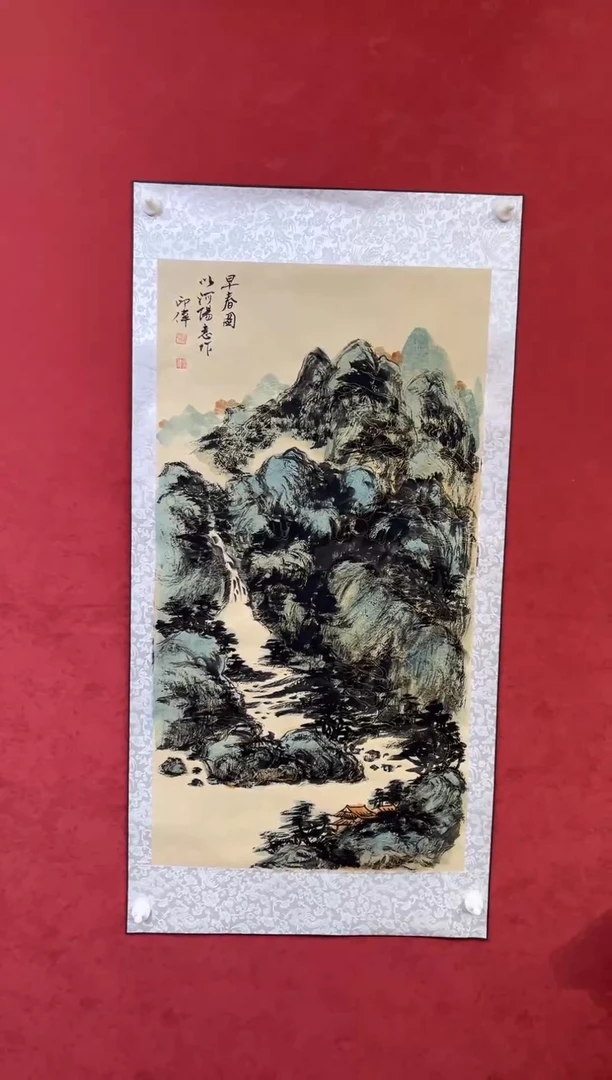 早春图
以河阳意作
印伟